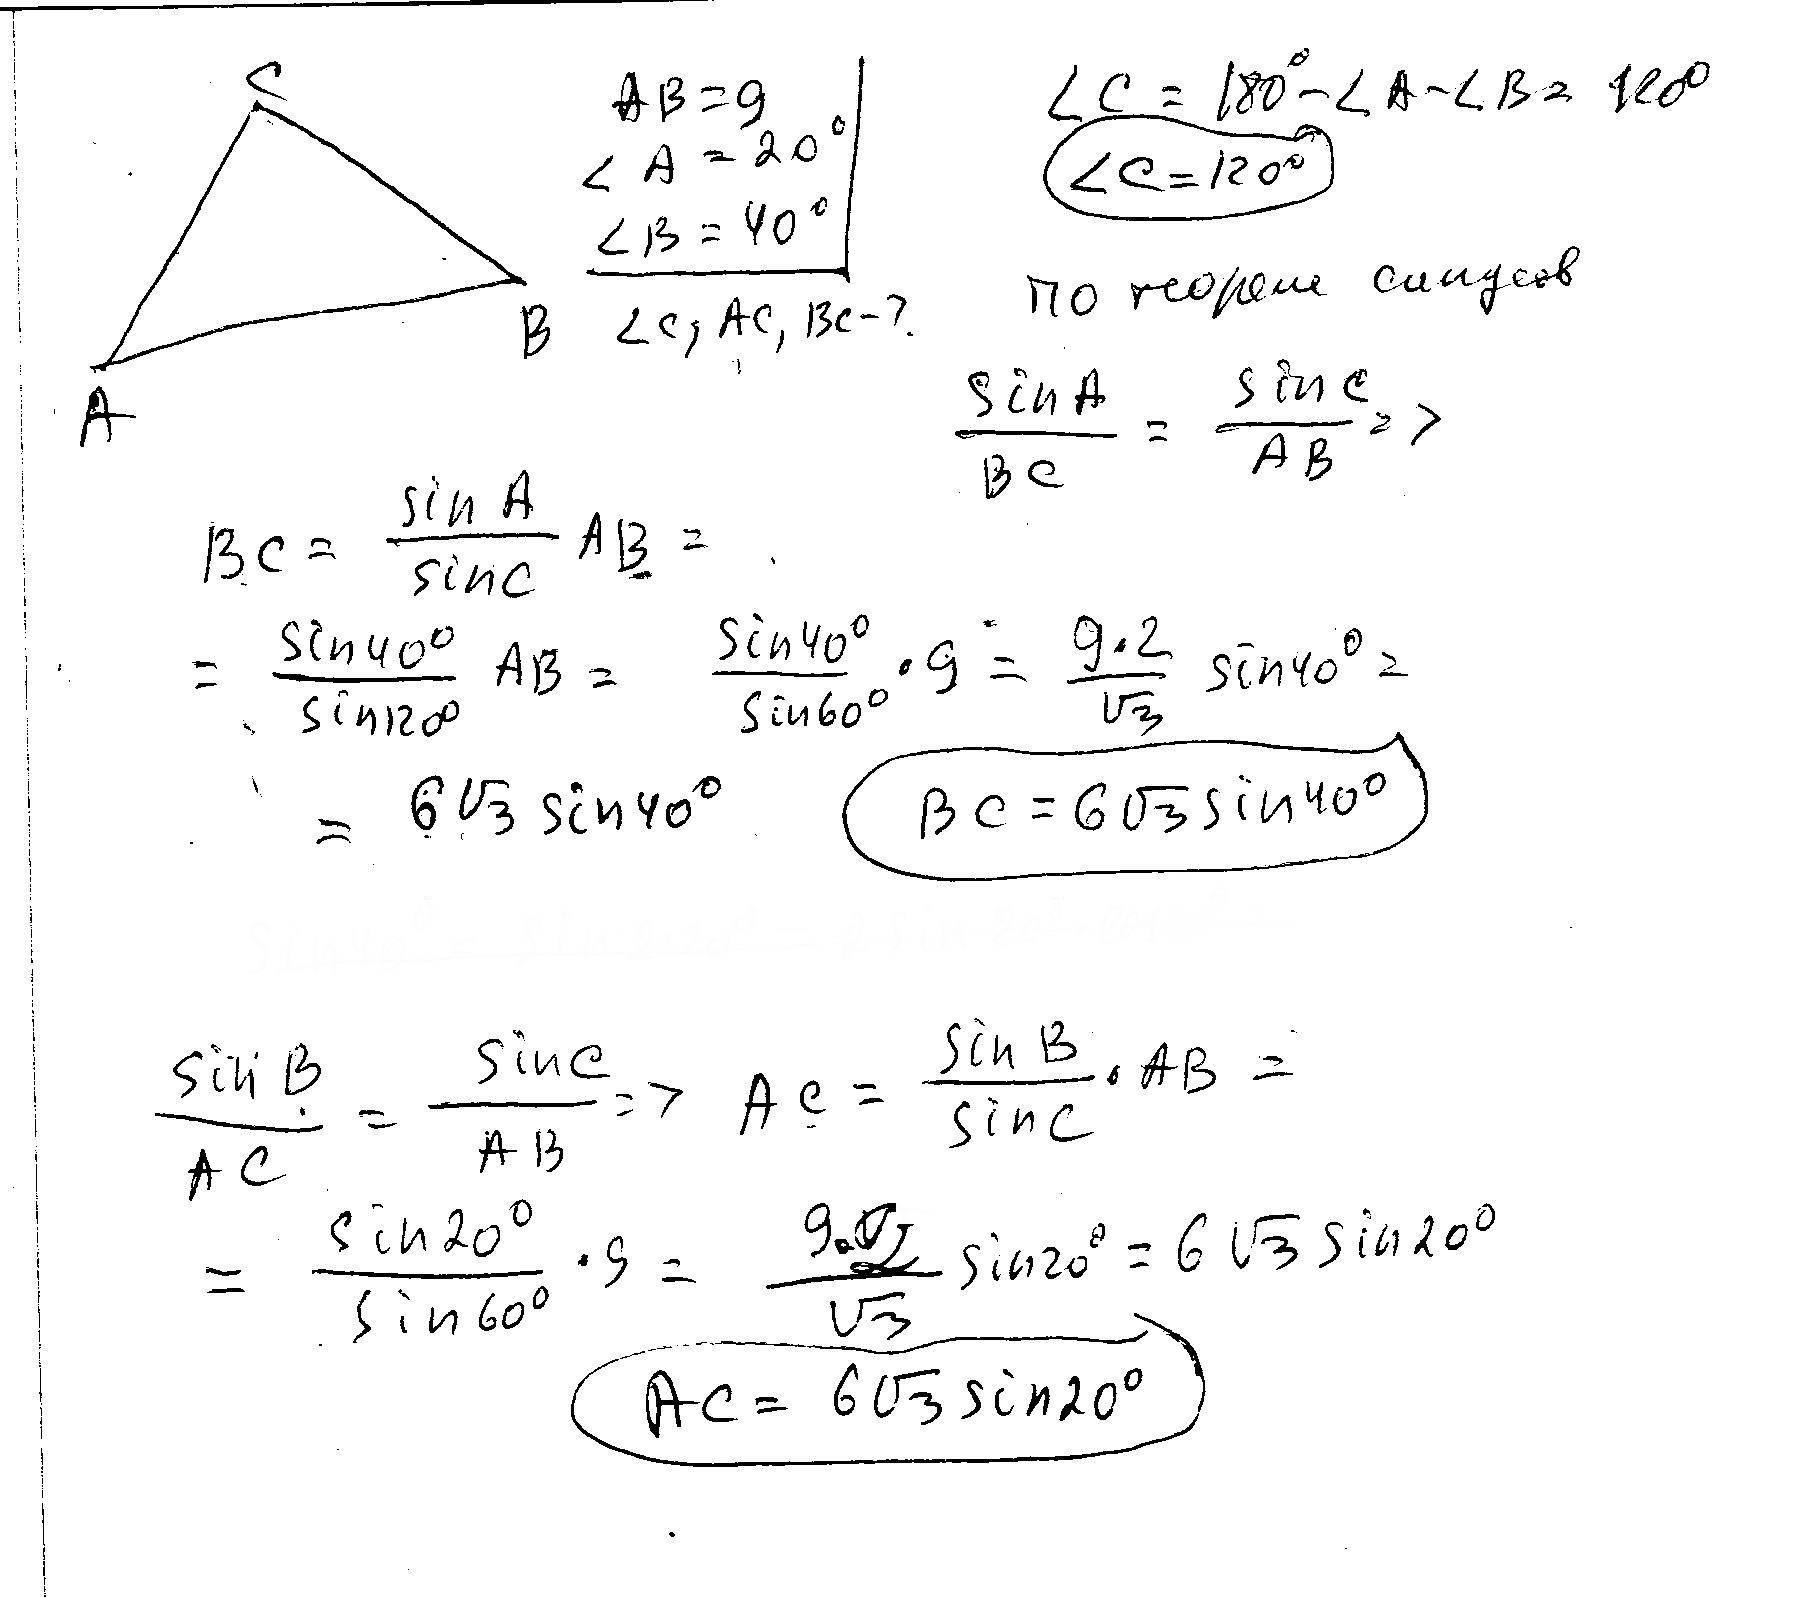 C
A
B
AB = 9
∠A = 20°
∠B = 40°
∠C, AC, BC - ?
∠C = 180° - ∠A - ∠B = 120°
∠C = 120°
по теореме синусов
sin A / BC = sin C / AB =>
BC = sin A / sin C AB =
= sin 40° / sin 120° AB = sin 40° / sin 60° · 9 = 9·2 / √3 sin 40° =
= 6√3 sin 40°
BC = 6√3 sin 40°
sin B / AC = sin C / AB => AC = sin B / sin C · AB =
= sin 20° / sin 60° · 9 = 9·2 / √3 sin 20° = 6√3 sin 20°
AC = 6√3 sin 20°